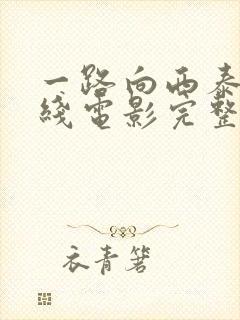 一路向西泰
线电影完整
衣青箬